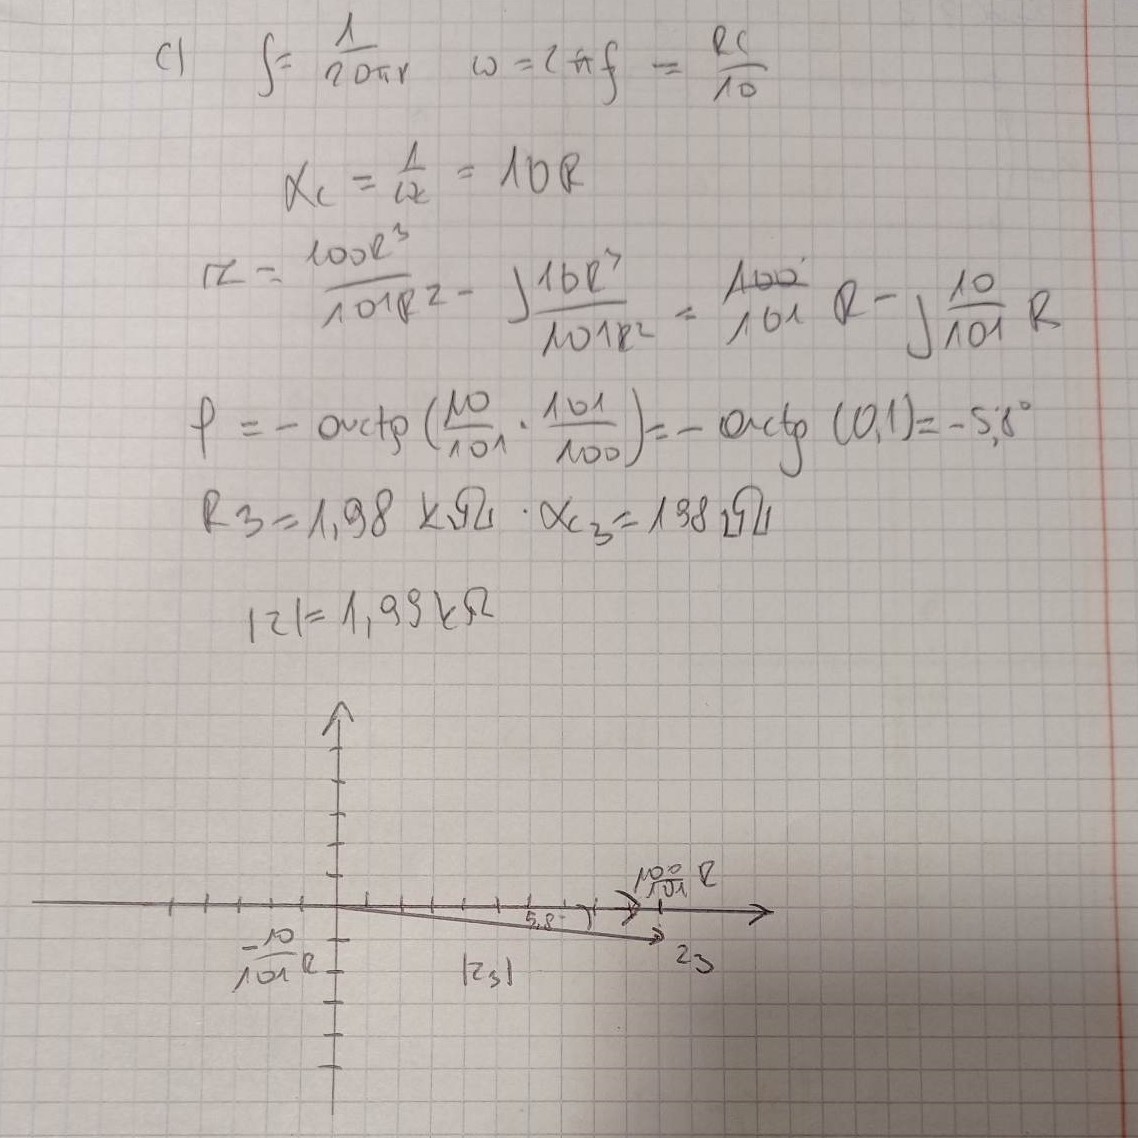 c) f = 1/20πr ω = 2πf = RC/10
Xc = 1/ωc = 10R
Z = 100R³/101R² - j 10R³/101R² = 100/101 R - j 10/101 R
φ = - arctg (10/101 · 101/100) = - arctg (0,1) = -5,8°
R3 = 1,98 kΩ · Xc3 = 198 Ω
|z| = 1,99 kΩ
100/101 R
5,8°
-10/101 R |z3| z3